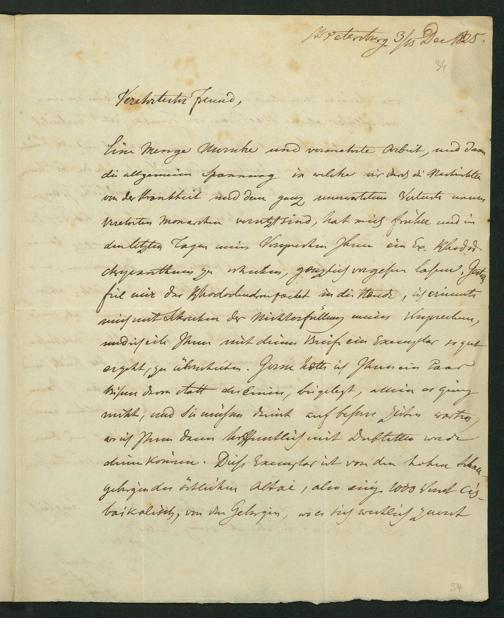 St Petersburg 3/15 Dec 1825.
34
Verehrtester Freund,
Eine Menge Unruhe und vermehrte Arbeit, und dann
die allgemeine Spannung in welche wir durch die Nachrichten
von der Krankheit und dem ganz unerwarteten Verluste unseres
verehrten Monarchen versetzt sind, hat mich früher und in
den letzten Tagen mein Versprechen Ihnen ein Ex. Rhodod.
chrysanthum zu schicken, gänzlich vergessen lassen. Jetzt
fiel mir das in die Hände, ich erinnerte
mich mit Schrecken der Nichterfüllung meines Versprechens,
und eile Ihnen mit diesem Brief ein Exemplar so gut
es geht, zu überschicken. Gerne hätte ich Ihnen ein Paar
statt des einen, beigelegt, allein es ging
nicht, und Sie müssen damit auf bessere Zeiten warten,
wo ich Ihnen dann hoffentlich mit Doubletten werde
dienen können. Dieß Exemplar ist von den hohen
gebirgen des östlichen Altai, also 1000 Werst Cis-
baikalisch, von den Gebirgen, wo es sich westlich zuerst
34